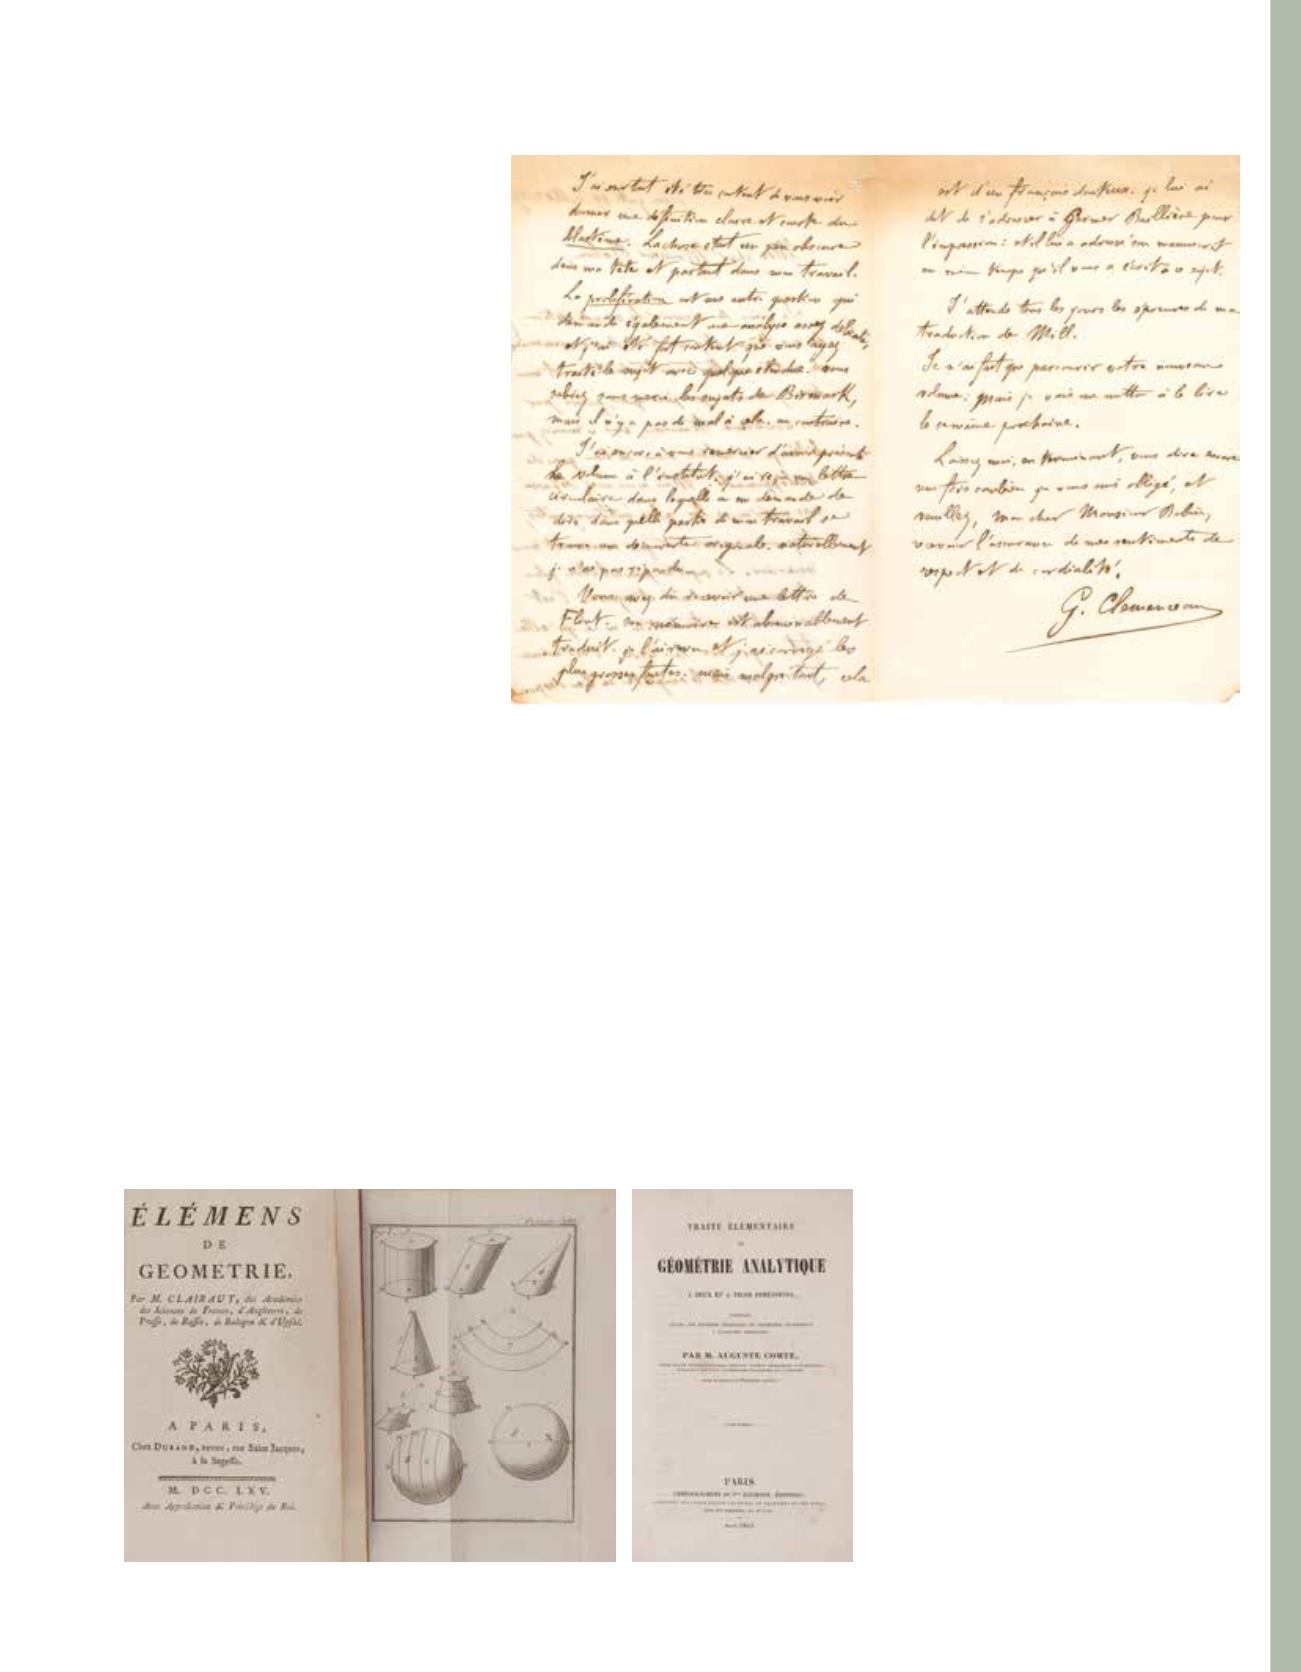 J'ai surtout été très content de vous voir
donner une définition claire et courte du
blastème. La chose était un peu obscure
dans ma tête et partant dans mon travail.
La prolifération est une autre question qui
demande également une analyse assez délicate,
et j'ai été fort content que vous ayez
traité le sujet avec quelque étendue. vous
les sujets de Bismark,
mais il n'y a pas de mal à cela. au contraire.
J'ai encore à vous remercier d'avoir présenté
le volume à l'institut. j'ai reçu une lettre
circulaire dans laquelle on me demande de
dire dans quelle partie de mon travail se
trouve une découverte originale. naturellement
je n'ai pas répondu.
Vous avez du recevoir une lettre de
Flint. son mémoire est abominablement
traduit. je l'ai revu et j'ai corrigé les
plus grosses fautes. mais malgré tout, cela
est d'un français douteux. je lui ai
dit de s'adresser à Germer Baillière pour
l'impression: et il lui a adressé son manuscrit
en même temps qu'il vous a écrit à ce sujet.
J'attends tous les jours les épreuves de ma
traduction de Mill.
Je n'ai fait que parcourir votre nouveau
volume: mais je vais me mettre à le lire
la semaine prochaine.
Laissez moi, en terminant, vous dire encore
une fois combien je vous suis obligé, et
veuillez, mon cher Monsieur Robin,
recevoir l'assurance de mes sentiments de
respect et de cordialité.
G. Clemenceau
ÉLÉMENS
DE
GEOMETRIE,
Par M. CLAIRAUT, des Académies
des Sciences de France, d'Angleterre, de
Prusse, de Russie, de Bologne & d'Upsal.
A PARIS,
Chez DURAND, neveu, rue Saint Jacques,
à la Sagesse.
M. DCC. LXV.
Avec Approbation & Privilége du Roi.
TRAITÉ ÉLÉMENTAIRE
DE
GÉOMÉTRIE ANALYTIQUE
A DEUX ET A TROIS DIMENSIONS,
PAR M. AUGUSTE COMTE,
PARIS.